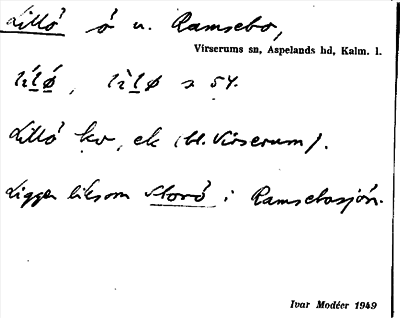 Lillö ö u. Ramsebo,
Virserums sn, Aspelands hd, Kalm. l.
Lillö kv, ek (bl. Virserum).
Ligger liksom Storö i Ramsebosjön.
Ivar Modéer 1949